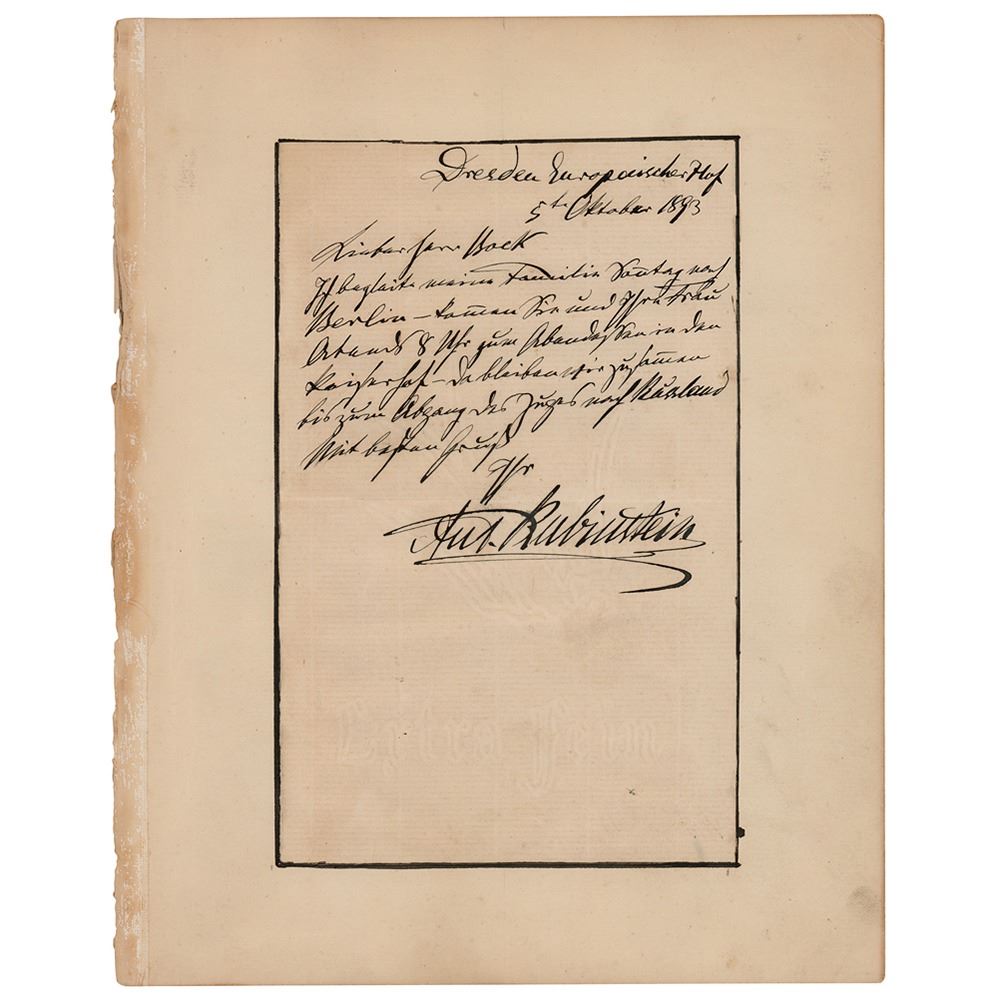 Dresden Europaischer Hof
5te Oktober 1893
Lieber Herr Bock
Ich begleite meine Familie Sontag nach
Berlin – kommen Sie und Ihre Frau
Abends 8 Uhr zum Abendessen in den
Kaiserhof – da bleiben wir zusammen
bis zum Abgang des Zuges nach Russland
Mit besten Gruß
Ihr
Ant. Rubinstein
Extra Fein